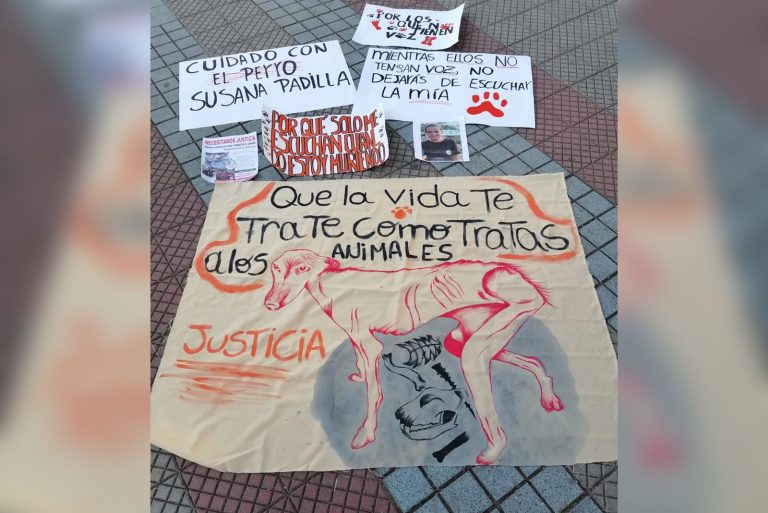 POR LOS
QUE NO
TIENEN
VOZ
CUIDADO CON
EL PERRO
SUSANA PADILLA
MIENTRAS ELLOS NO
TENGAN VOZ, NO
DEJARAS DE ESCUCHAR
LA MÍA
NECESITAMOS JUSTICIA
PORQUE SOLO ME
ESCUCHAN CUAN
DO ESTOY MURIENDO
QUE LA VIDA TE
TRATE COMO TRATAS
A LOS ANIMALES
JUSTICIA